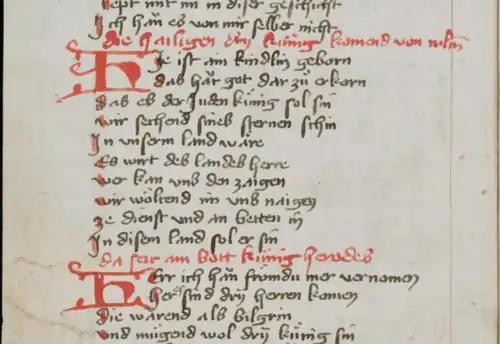 lept mit im in diser geschicht
Ich han es von mir selber nicht
die hailigen dry küng komend von
Hie ist ain kindlin geborn
das hat got dar zů erkorn
das es der Juden küng sol sin
wir sechend sines sternen schin
In unserm land wäre
Es wirt des landes herre
wer kan uns den zaigen
wir wöltend im uns naigen
ze dienst und an betten in
In disem land sol er sin
da seit ain bott küng herodes
Herr ich han frömdu mer vernomen
Her sind dry herren komen
die wärend als bilgrin
und mügend wol dry küng sin